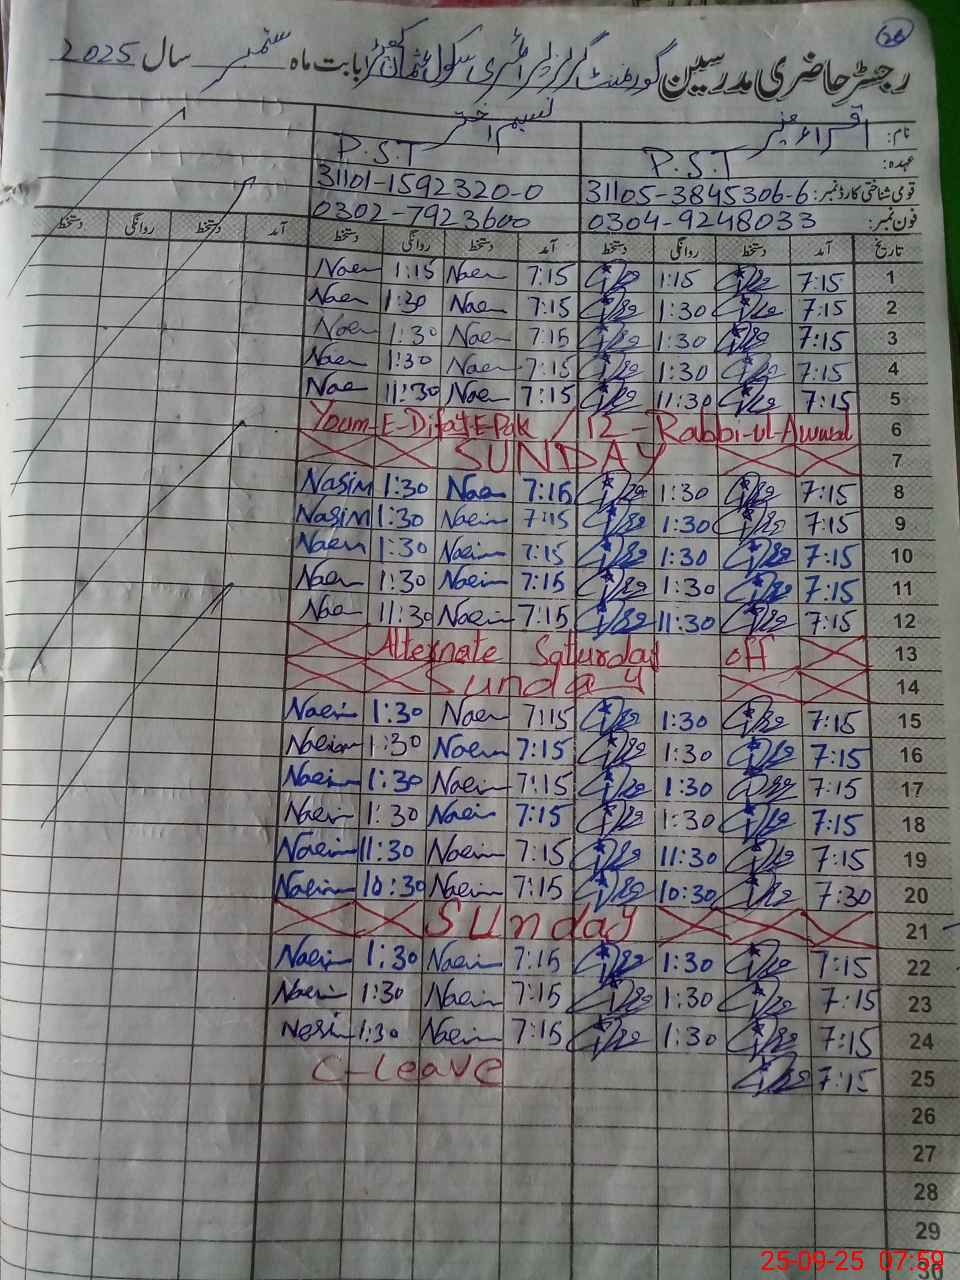 26
رجسٹر حاضری مدرسین گورنمنٹ گرلز پرائمری سکول بابت ماہ ستمبر سال 2025
نام: اقراء نسیم اختر
عہدہ: P.S.T P.S.T
قومی شناختی کارڈ نمبر: 31105-3845306-6 31101-1592320-0
فون نمبر: 0304-9248033 0302-7923600
تاریخ آمد دستخط روانگی دستخط آمد دستخط روانگی دستخط آمد دستخط روانگی دستخط
1 7:15 1:15 7:15 Naem 1:15 Naem
2 7:15 1:30 7:15 Naem 1:30 Naem
3 7:15 1:30 7:15 Naem 1:30 Naem
4 7:15 1:30 7:15 Naem 1:30 Naem
5 7:15 11:30 7:15 Naem 11:30 Nae
6 Youm-E-Difa,E-Pak / 12-Rabbi-ul-Awwal
7 SUNDAY
8 7:15 1:30 7:15 Nae 1:30 Nasim
9 7:15 1:30 7:15 Naeim 1:30 Nasim
10 7:15 1:30 7:15 Naeim 1:30 Naem
11 7:15 1:30 7:15 Naeim 1:30 Naem
12 7:15 11:30 7:15 Naeim 11:30 Naem
13 Alternate Saturday off
14 Sunday
15 7:15 1:30 7:15 Naem 1:30 Naeim
16 7:15 1:30 7:15 Naeim 1:30 Naeim
17 7:15 1:30 7:15 Naeim 1:30 Naeim
18 7:15 1:30 7:15 Naeim 1:30 Naeim
19 7:15 11:30 7:15 Naeim 11:30 Naeim
20 7:30 10:30 7:15 Naeim 10:30 Naeim
21 Sunday
22 7:15 1:30 7:15 Naeim 1:30 Naeim
23 7:15 1:30 7:15 Naeim 1:30 Naeim
24 7:15 1:30 7:15 Naeim 1:30 Nasim
25 7:15 C-Leave
26
27
28
29
30
25-09-25 07:59